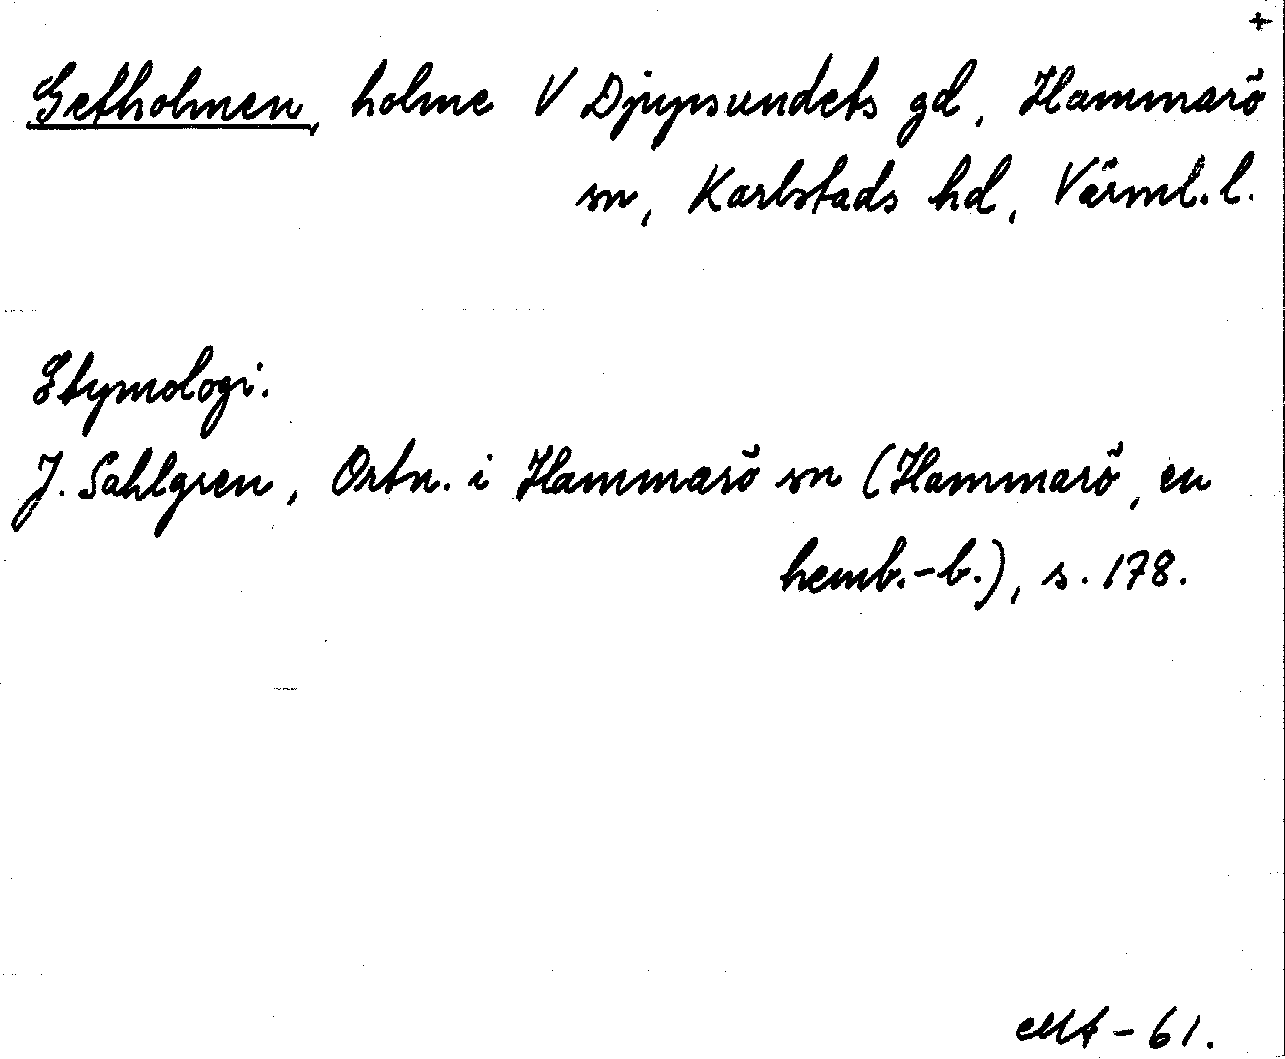 +
Getholmen, holme V Djupsundets gd, Hammarö
sn, Karlstads hd, Värml. l.
Etymologi.
J. Sahlgren, Ortn. i Hammarö sn (Hammarö, en
hemb.-b.), s. 178.
MA - 61.